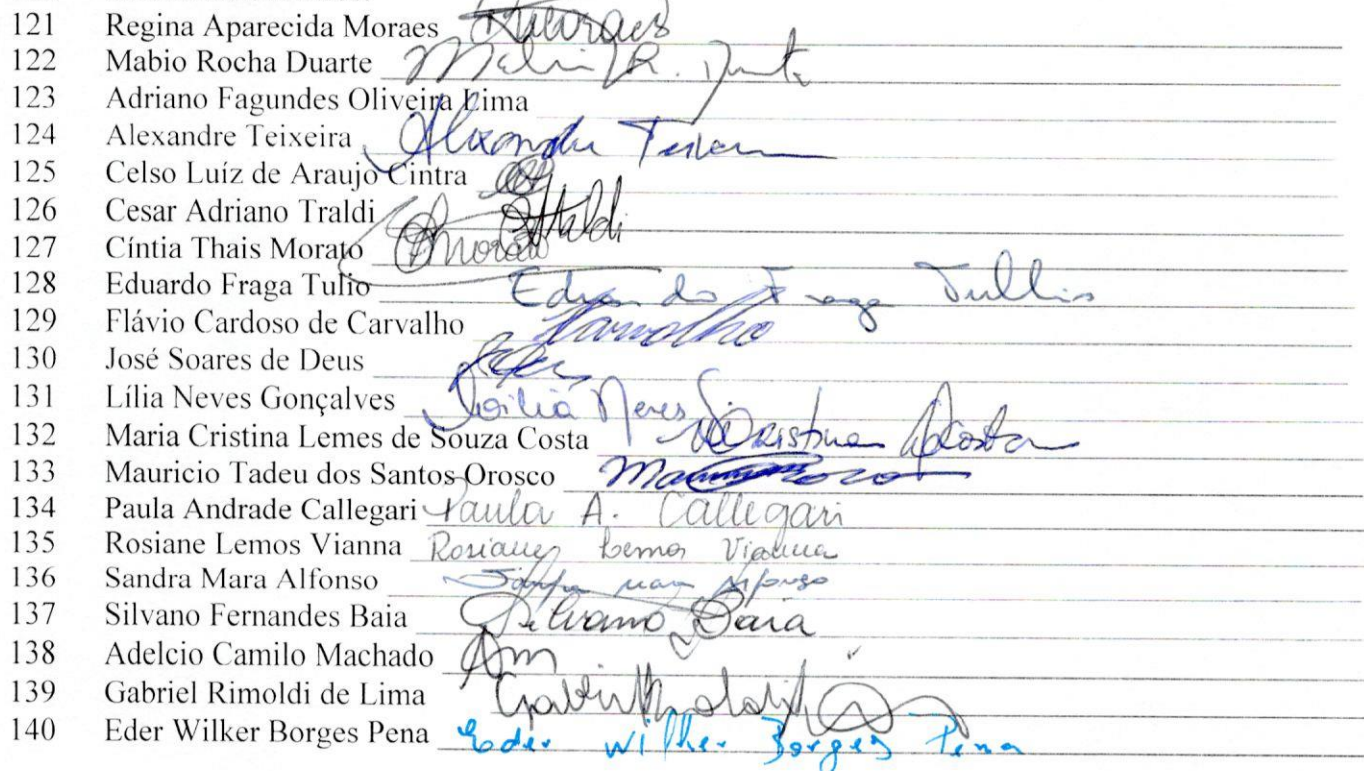 121 Regina Aparecida Moraes RMoraes
122 Mabio Rocha Duarte Mabio R. Duarte
123 Adriano Fagundes Oliveira Lima
124 Alexandre Teixeira Alexandre Teixeira
125 Celso Luíz de Araujo Cintra
126 Cesar Adriano Traldi CATraldi
127 Cíntia Thais Morato CMorato
128 Eduardo Fraga Tulio Eduardo Fraga Tullio
129 Flávio Cardoso de Carvalho Carvalho
130 José Soares de Deus
131 Lília Neves Gonçalves Lília Neves
132 Maria Cristina Lemes de Souza Costa Cristina Costa
133 Mauricio Tadeu dos Santos Orosco
134 Paula Andrade Callegari Paula A. Callegari
135 Rosiane Lemos Vianna Rosiane Lemos Vianna
136 Sandra Mara Alfonso Sandra Mara Alfonso
137 Silvano Fernandes Baia Silvano Baia
138 Adelcio Camilo Machado
139 Gabriel Rimoldi de Lima
140 Eder Wilker Borges Pena Eder Wilker Borges Pena